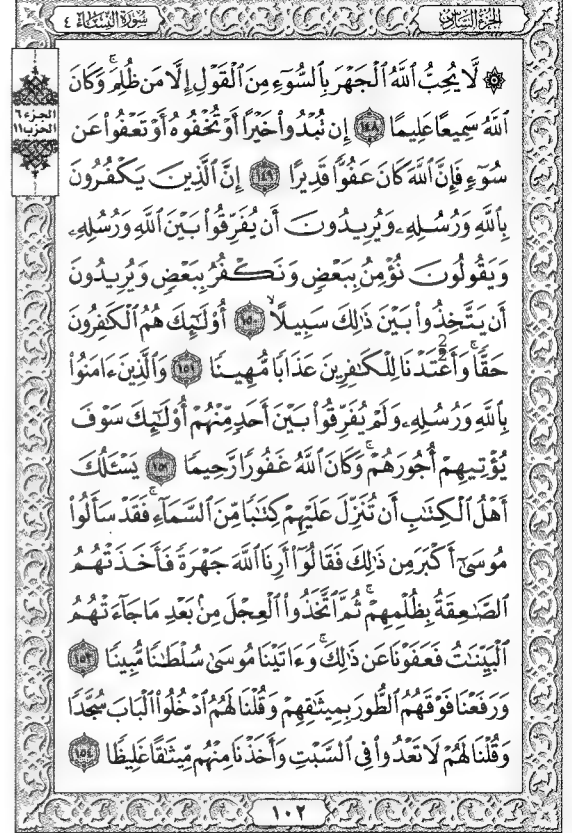 الجزء السادس
سورة النساء ٤
الجزء ٦
الحزب ١١
۞ لَّا يُحِبُّ ٱللَّهُ ٱلْجَهْرَ بِٱلسُّوٓءِ مِنَ ٱلْقَوْلِ إِلَّا مَن ظُلِمَ ۚ وَكَانَ
ٱللَّهُ سَمِيعًا عَلِيمًا ١٤٨ إِن تُبْدُوا۟ خَيْرًا أَوْ تُخْفُوهُ أَوْ تَعْفُوا۟ عَن
سُوٓءٍ فَإِنَّ ٱللَّهَ كَانَ عَفُوًّا قَدِيرًا ١٤٩ إِنَّ ٱلَّذِينَ يَكْفُرُونَ
بِٱللَّهِ وَرُسُلِهِۦ وَيُرِيدُونَ أَن يُفَرِّقُوا۟ بَيْنَ ٱللَّهِ وَرُسُلِهِۦ
وَيَقُولُونَ نُؤْمِنُ بِبَعْضٍ وَنَكْفُرُ بِبَعْضٍ وَيُرِيدُونَ
أَن يَتَّخِذُوا۟ بَيْنَ ذَٰلِكَ سَبِيلًا ۙ ١٥٠ أُو۟لَـٰٓئِكَ هُمُ ٱلْكَـٰفِرُونَ
حَقًّا ۚ وَأَعْتَدْنَا لِلْكَـٰفِرِينَ عَذَابًا مُّهِينًا ١٥١ وَٱلَّذِينَ ءَامَنُوا۟
بِٱللَّهِ وَرُسُلِهِۦ وَلَمْ يُفَرِّقُوا۟ بَيْنَ أَحَدٍ مِّنْهُمْ أُو۟لَـٰٓئِكَ سَوْفَ
يُؤْتِيهِمْ أُجُورَهُمْ ۚ وَكَانَ ٱللَّهُ غَفُورًا رَّحِيمًا ١٥٢ يَسْـَٔلُكَ
أَهْلُ ٱلْكِتَـٰبِ أَن تُنَزِّلَ عَلَيْهِمْ كِتَـٰبًا مِّنَ ٱلسَّمَآءِ ۚ فَقَدْ سَأَلُوا۟
مُوسَىٰٓ أَكْبَرَ مِن ذَٰلِكَ فَقَالُوٓا۟ أَرِنَا ٱللَّهَ جَهْرَةً فَأَخَذَتْهُمُ
ٱلصَّـٰعِقَةُ بِظُلْمِهِمْ ۚ ثُمَّ ٱتَّخَذُوا۟ ٱلْعِجْلَ مِنۢ بَعْدِ مَا جَآءَتْهُمُ
ٱلْبَيِّنَـٰتُ فَعَفَوْنَا عَن ذَٰلِكَ ۚ وَءَاتَيْنَا مُوسَىٰ سُلْطَـٰنًا مُّبِينًا ١٥٣
وَرَفَعْنَا فَوْقَهُمُ ٱلطُّورَ بِمِيثَـٰقِهِمْ وَقُلْنَا لَهُمُ ٱدْخُلُوا۟ ٱلْبَابَ سُجَّدًا
وَقُلْنَا لَهُمْ لَا تَعْدُوا۟ فِى ٱلسَّبْتِ وَأَخَذْنَا مِنْهُم مِّيثَـٰقًا غَلِيظًا ١٥٤
١٠٢